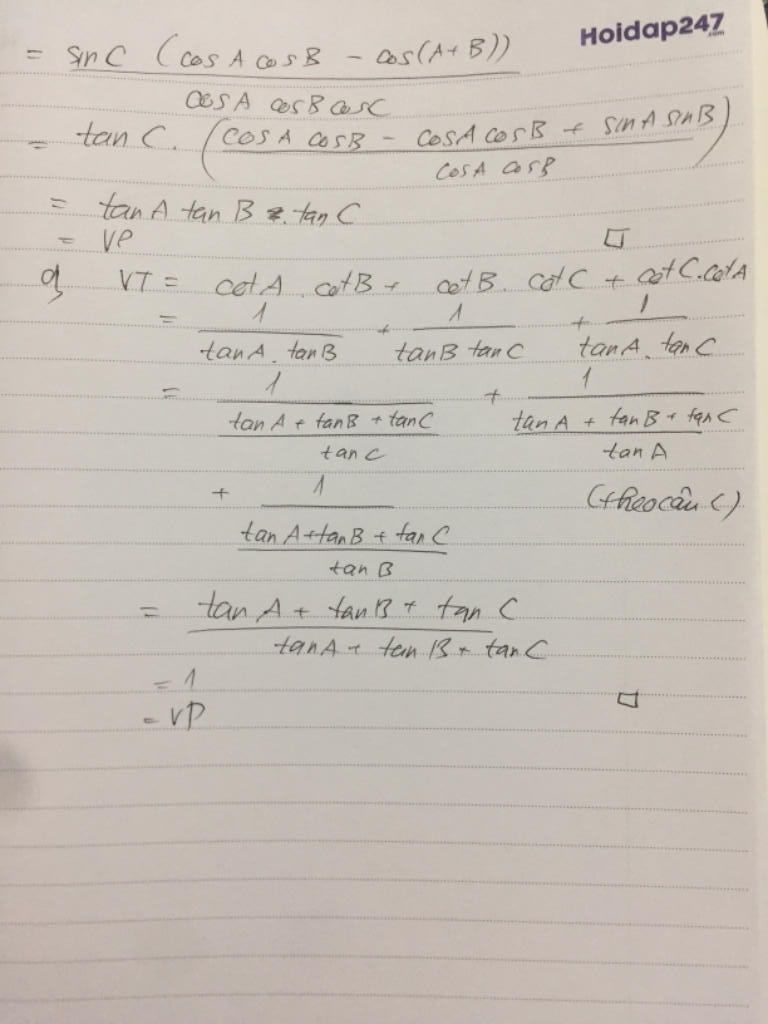 Hoidap247.com
= sin C (cos A cos B - cos(A+B))
cos A cos B cos C
= tan C. (cos A cos B - cos A cos B + sin A sin B)
cos A cos B
= tan A tan B . tan C
= VP □
VT = cot A . cot B + cot B . cot C + cot C . cot A
= 1 + 1 + 1
tan A . tan B tan B tan C tan A . tan C
= 1 + 1
tan A + tan B + tan C tan A + tan B + tan C
tan C tan A
+ 1 (theo câu C)
tan A + tan B + tan C
tan B
= tan A + tan B + tan C
tan A + tan B + tan C
= 1
= VP □